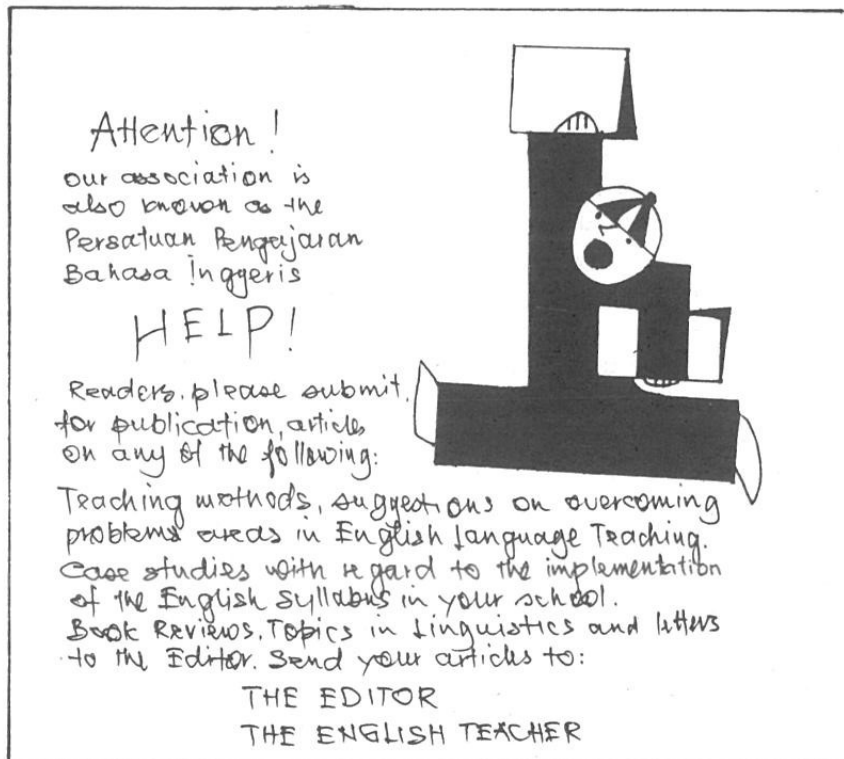 Attention!
our association is
also known as the
Persatuan Pengajaran
Bahasa Inggeris
HELP!
Readers, please submit,
for publication, articles
on any of the following:
Teaching methods, suggestions on overcoming
problems areas in English Language Teaching.
Case studies with regard to the implementation
of the English Syllabus in your school.
Book Reviews, Topics in Linguistics and letters
to the Editor. Send your articles to:
THE EDITOR
THE ENGLISH TEACHER